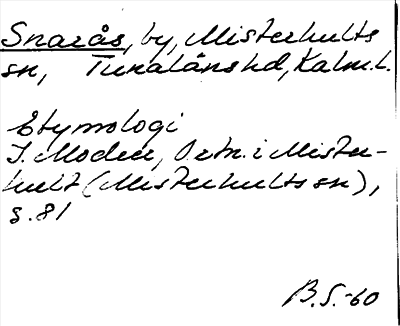 Snarås, by, Misterhults
sn, Tunaläns hd, Kalm.l.
Etymologi
I. Modéer, Ortn. i Mister-
hult (Misterhults sn),
s. 81
B.S.-60